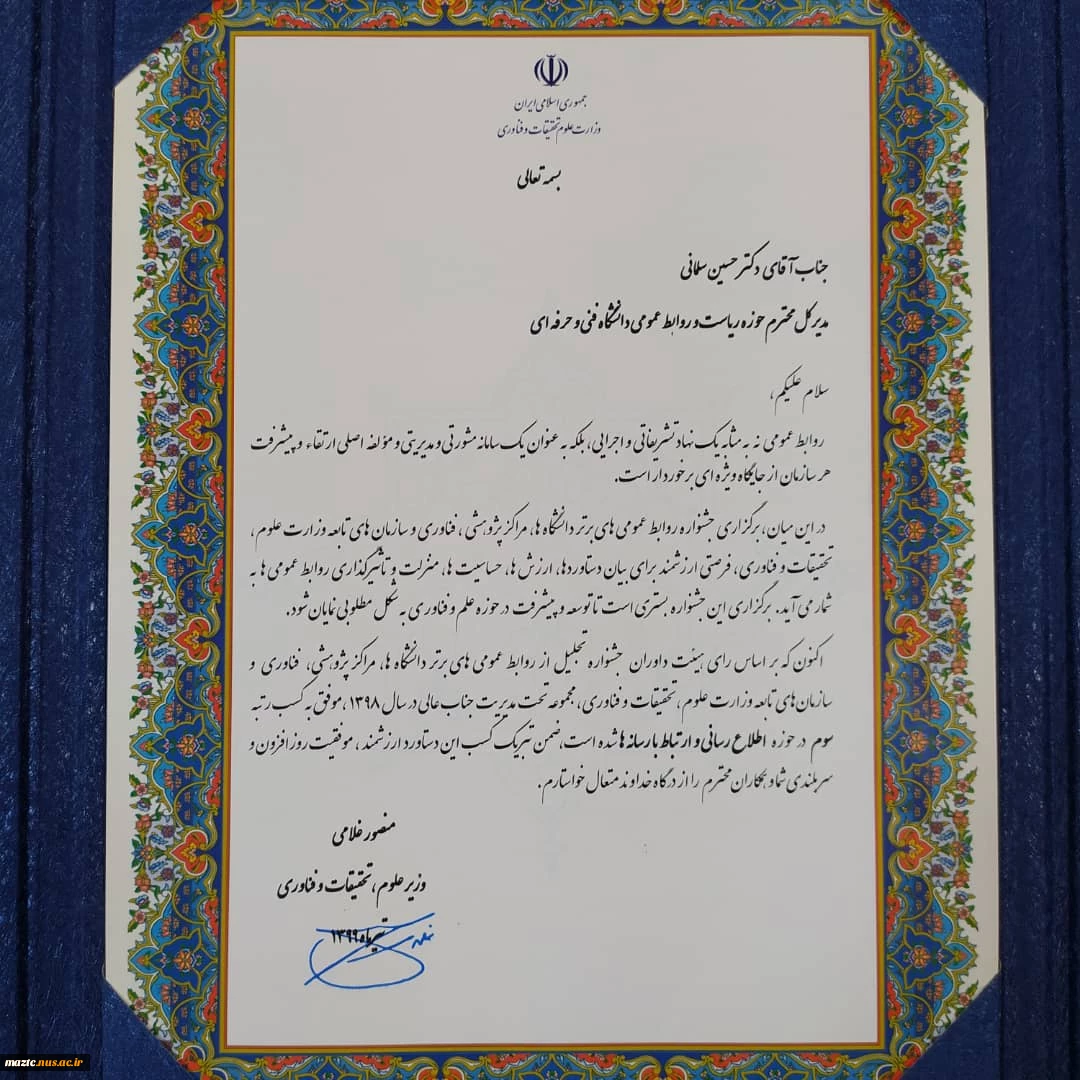 جمهوری اسلامی ایران
وزارت علوم تحقیقات و فناوری
بسمه تعالی
جناب آقای دکتر حسین سلمانی
مدیر کل محترم حوزه ریاست و روابط عمومی دانشگاه فنی و حرفه ای
سلام علیکم،
روابط عمومی نه به مثابه یک نهاد تشریفاتی و اجرایی، بلکه به عنوان یک سامانه مشورتی و مدیریتی و مؤلفه اصلی ارتقاء و پیشرفت
هر سازمان از جایگاه ویژه ای برخوردار است.
در این میان، برگزاری جشنواره روابط عمومی های برتر دانشگاه ها، مراکز پژوهشی، فناوری و سازمان های تابعه وزارت علوم،
تحقیقات و فناوری، فرصتی ارزشمند برای بیان دستاوردها، ارزش ها، حساسیت ها، منزلت و تأثیرگذاری روابط عمومی ها به
شمار می آید. برگزاری این جشنواره بستری است تا توسعه و پیشرفت در حوزه علم و فناوری به شکل مطلوبی نمایان شود.
اکنون که بر اساس رای هیئت داوران جشنواره تجلیل از روابط عمومی های برتر دانشگاه ها، مراکز پژوهشی، فناوری و
سازمان های تابعه وزارت علوم، تحقیقات و فناوری، مجموعه تحت مدیریت جناب عالی در سال ۱۳۹۸، موفق به کسب رتبه
سوم در حوزه اطلاع رسانی و ارتباط با رسانه ها شده است، ضمن تبریک کسب این دستاورد ارزشمند، موفقیت روز افزون و
سربلندی شما و همکاران محترم را از درگاه خداوند متعال خواستارم.
منصور غلامی
وزیر علوم، تحقیقات و فناوری
تیرماه ۱۳۹۹
maztc.nus.ac.ir